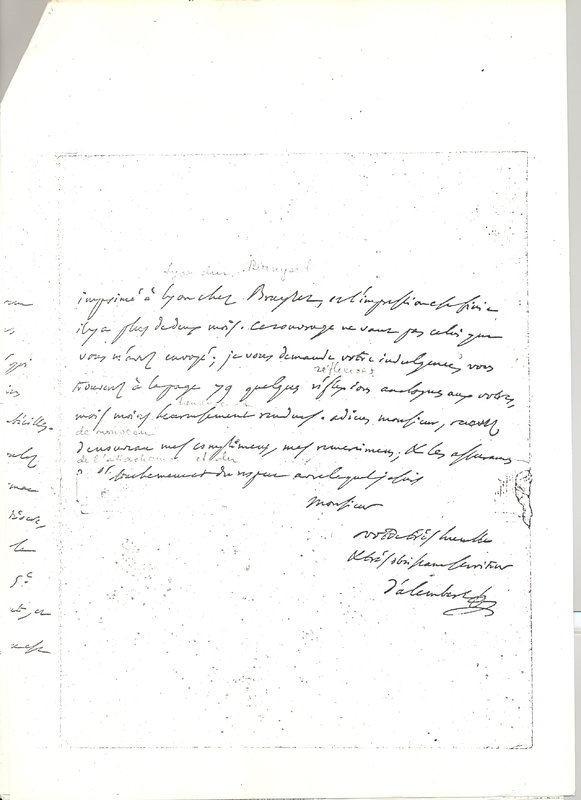 Lyon chez Bruyset
imprimé à Lyon chez Bruyset, et l'impression est finie
il y a plus de deux mois. cet ouvrage ne vaut pas celui que
vous m'avez envoyé; je vous demande votre indulgence, vous
réflexions
trouverez à la page 79 quelques réflexions analogues aux votres,
mais moins heureusement rendues. adieu, monsieur, recevez
de nouveau
de nouveau mes complimens, mes remerciemens, & les assurances
de l'attachement et du
de l'attachement et du respect avec lequel je suis
Monsieur
votre très humble
& très obéissant serviteur
D'alembert